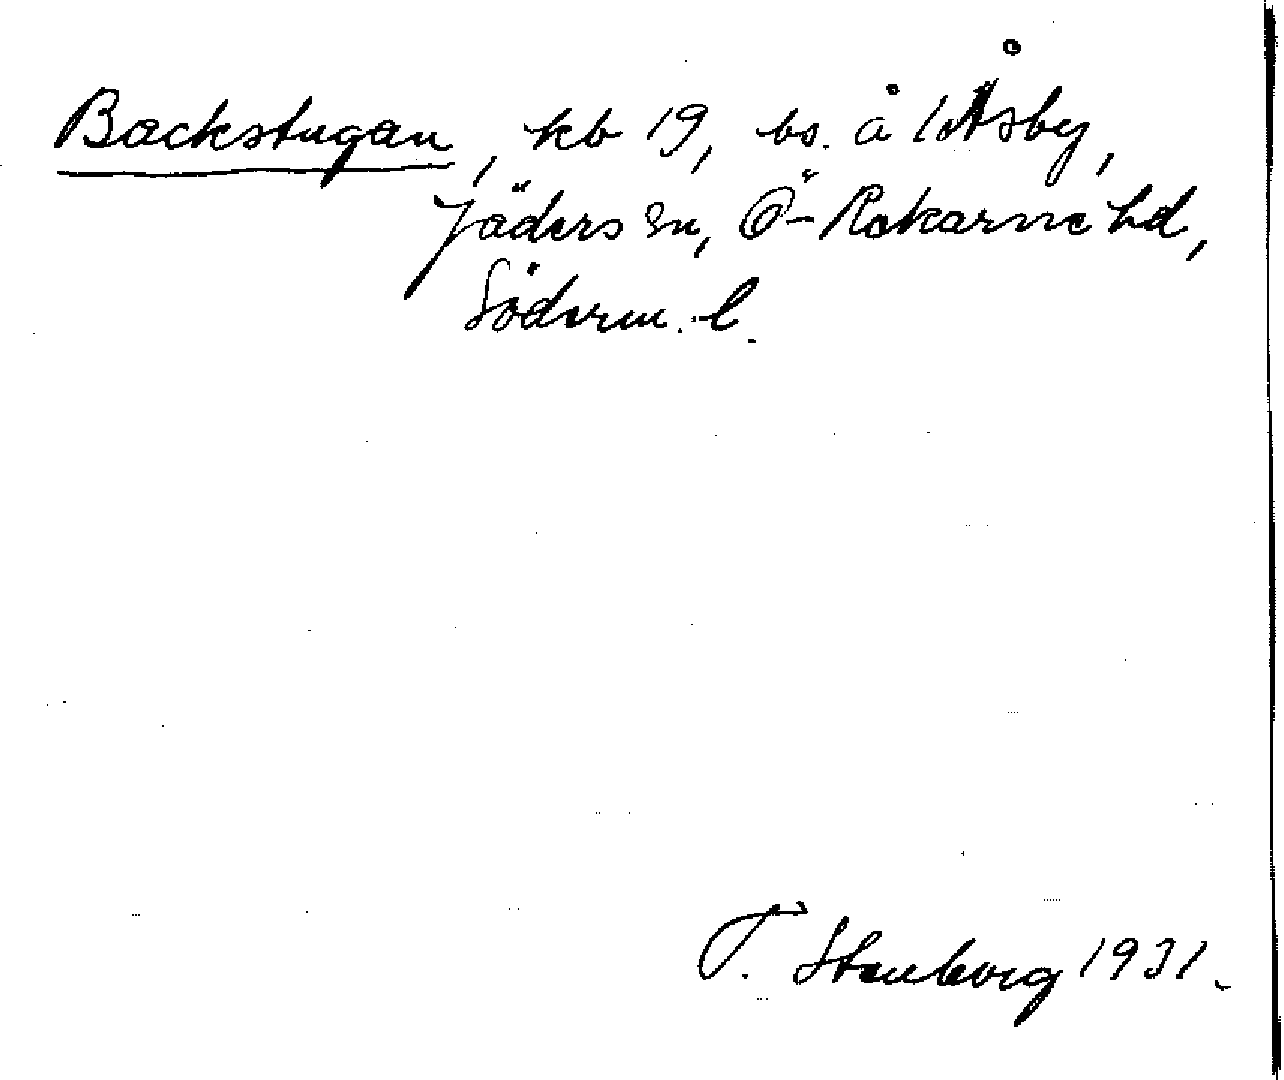 Backstugan, kb 19, bs. å 1 Åsby,
Jäders sn, Ö-Rekarne hd,
Söderm. l.
T. Stenborg 1931.